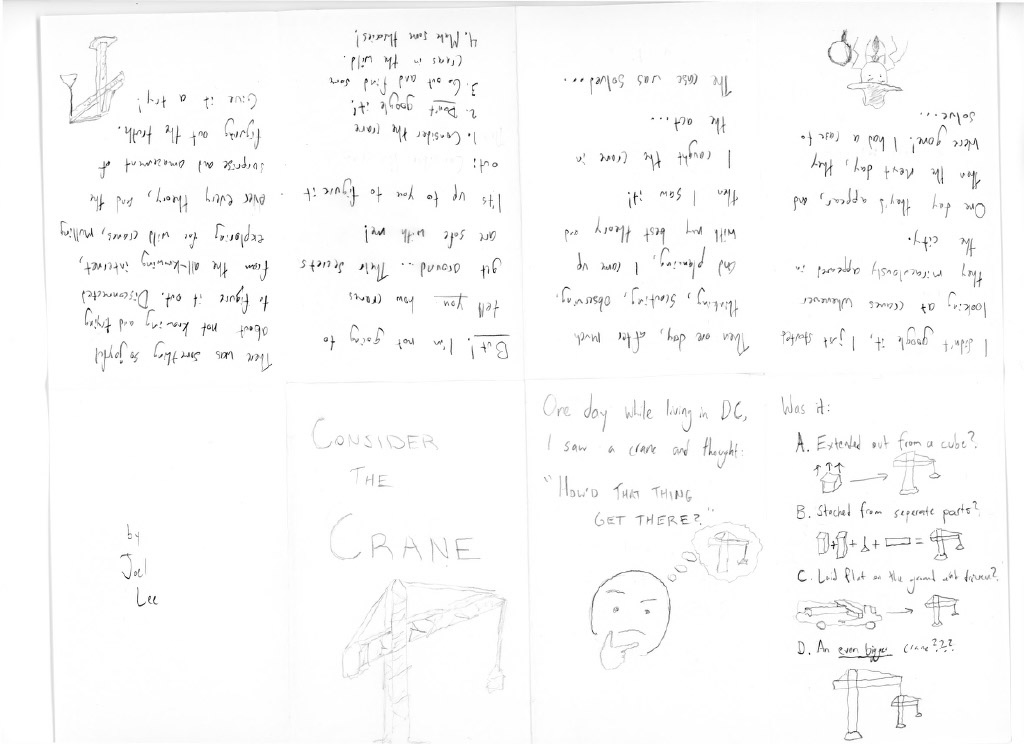 CONSIDER
THE
CRANE
One day while living in DC,
I saw a crane and thought:
"HOW'D THAT THING
GET THERE?"
Was it:
A. Extended out from a cube?
B. Stacked from seperate parts?
C. Laid flat on the ground driven?
D. An even bigger crane???
I didn't google it, I just started
looking at cranes whenever
they miraculously appeared in
the city.
One day they'd appear, and
then the next day, they
were gone! I had a case to
solve...
Then one day, after much
thinking, scouting, observing,
and planning, I came up
with my best theory and
then I saw it!!
I caught the crane in
the act...
The case was solved...
But! I'm not going to
tell you how cranes
get around... Their secrets
are safe with me!
It's up to you to figure it
out:
1. Consider the crane
2. Don't google it!
3. Go out and find some
cranes in the wild.
4. Make some theories!
There was something so joyful
about not knowing and trying
to figure it out. Disconnected
from the all-knowing internet,
exploring for wild cranes, mulling
over every theory, and the
surprise and amazement of
figuring out the truth.
Give it a try!
by
Joel
Lee